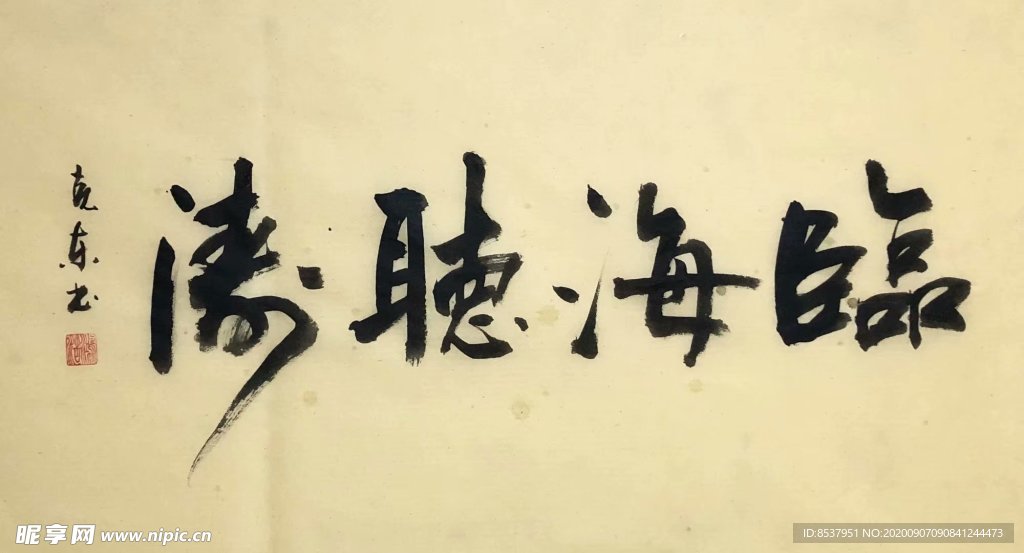 臨海聽濤
克东书
昵享网 www.nipic.cn
ID:8537951 NO:20200907090841244473